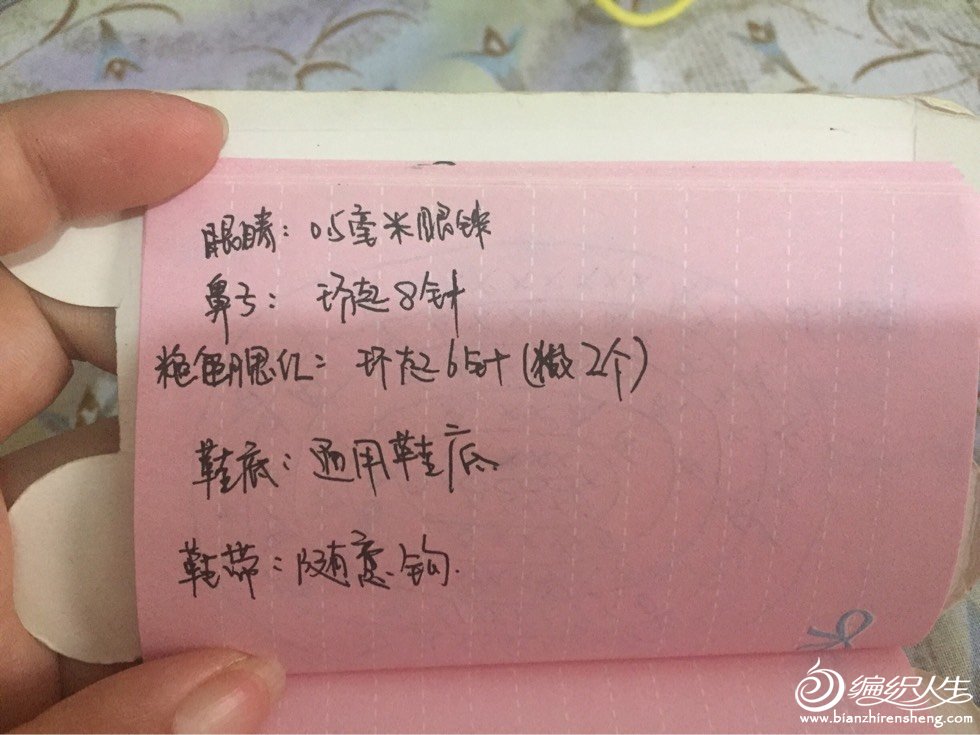 眼睛：0.5毫米眼珠
鼻子：环起8针
粉色腮红：环起6针（做2个）
鞋底：通用鞋底
鞋带：随意钩.
编织人生
www.bianzhirensheng.com